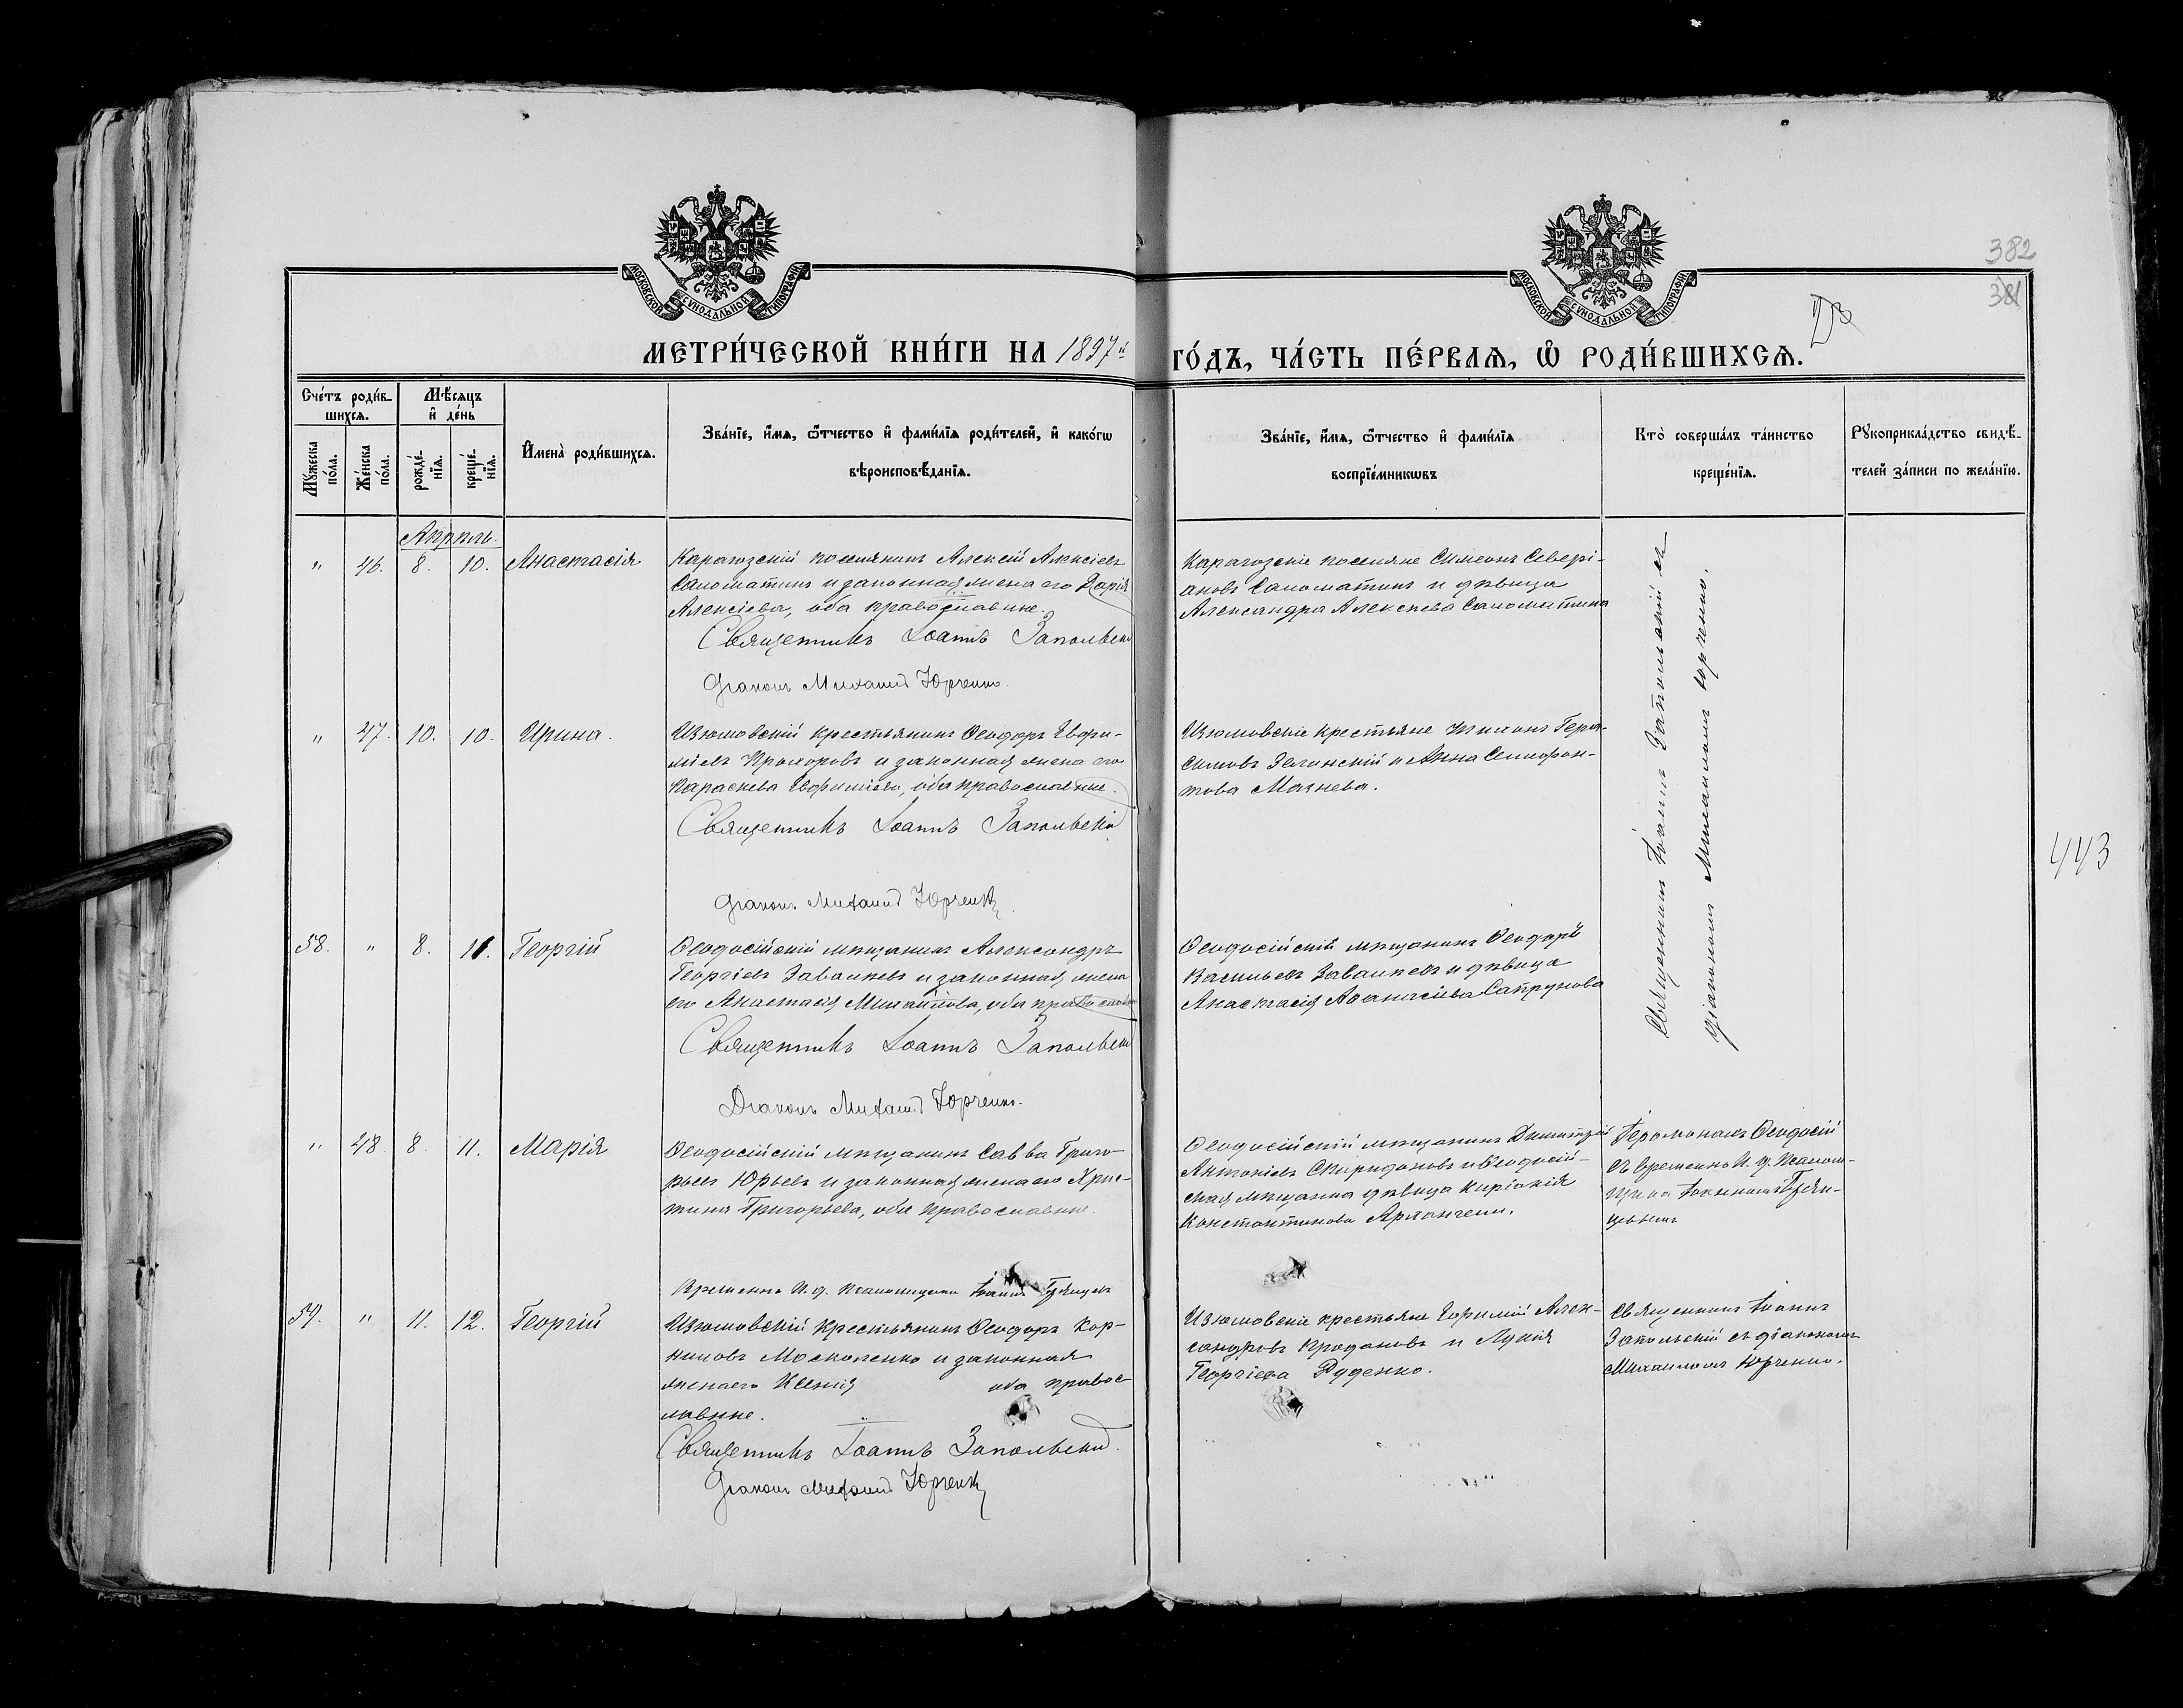 382
381
23
МОСКОВСКОЙ СѴНОДАЛЬНОЙ ТИПОГРАФІИ
МОСКОВСКОЙ СѴНОДАЛЬНОЙ ТИПОГРАФІИ
МЕТРИ́ЧЕСКОЙ КНИ́ГИ НА 1897й ГО́ДЪ, ЧА́СТЬ ПЕ́РВАѦ, Ѽ РОДИ́ВШИХСѦ.
Сче́тъ роди́в-
шихсѧ.
Мꙋ́жеска по́ла.
Же́нска по́ла.
Мѣ́сѧцъ
и҆ де́нь
рожде́-
нїѧ.
креще́-
нїѧ.
И҆мена̀ роди́вшихсѧ.
Зва́нїе, и҆́мѧ, ѻ҆́тчество и҆ фами́лїѧ роди́телей, и҆ како́гѡ
вѣроисповѣ́данїѧ.
Зва́нїе, и҆́мѧ, ѻ҆́тчество и҆ фами́лїѧ
воспрїе́мникѡвъ
Кто̀ соверша́лъ та́инство
креще́нїѧ.
Рꙋкоприкла́дство свидѣ́-
телей за́писи по жела́нїю.
Апрѣль.
" 46. 8. 10. Анастасія
Карагозскій поселянинъ Алексій Алексіевъ
Саломатинъ и законная жена его Дарія
Алексіева, оба православные.
Священникъ Іоаннъ Запольскій
Діаконъ Михаилъ Юрченко.
Карагозскіе поселяне Симеонъ Севері-
ановъ Саломатинъ и дѣвица
Александра Алексѣева Саломатина
Священникъ Іоаннъ Запольскій съ
діакономъ Михаиломъ Юрченко.
" 47. 10. 10. Ирина.
Изюмовскій крестьянинъ Ѳеодоръ Евфи-
міевъ Прохоровъ и законная жена его
Параскева Евфиміева, оба православные.
Священникъ Іоаннъ Запольскій
Діаконъ Михаилъ Юрченко
Изюмовскіе крестьяне Тихонъ Гера-
симовъ Зелинскій и Анна
това Мачнева.
443
58. " 8. 11. Георгій
Ѳеодосійскій мѣщанинъ Александръ
Георгіевъ и законная жена
его Анастасія Михайлова, оба православные
Священникъ Іоаннъ Запольскій
Діаконъ Михаилъ Юрченко.
Ѳеодосійскій мѣщанинъ Ѳеодоръ
Васильевъ и дѣвица
Анастасія Аѳанасіева Сапрунова
" 48. 8. 11. Марія
Ѳеодосійскій мѣщанинъ Савва Григо-
рьевъ Юрьевъ и законная жена его Хрис-
тина Григорьева, оба православные.
Временно И. д. Псаломщика Іоаннъ
Ѳеодосійскій мѣщанинъ Димитрій
Антоніевъ Спиридоновъ и Ѳеодосій-
ская мѣщанка дѣвица Киріакія
Константинова
Іеромонахъ Ѳеодосій
съ временно И. д. Псалом-
щика Іоанномъ
59. " 11. 12. Георгій
Изюмовскій Крестьянинъ Ѳеодоръ Кор-
ниловъ Москаленко и законная
жена его Ксенія оба правос-
лавные.
Священникъ Іоаннъ Запольскій.
Діаконъ Михаилъ Юрченко
Изюмовскіе крестьяне Ефимій Алек-
сандровъ и Лукія
Георгіева Руденко.
Священникъ Іоаннъ
Запольскій съ діакономъ
Михаиломъ Юрченко.